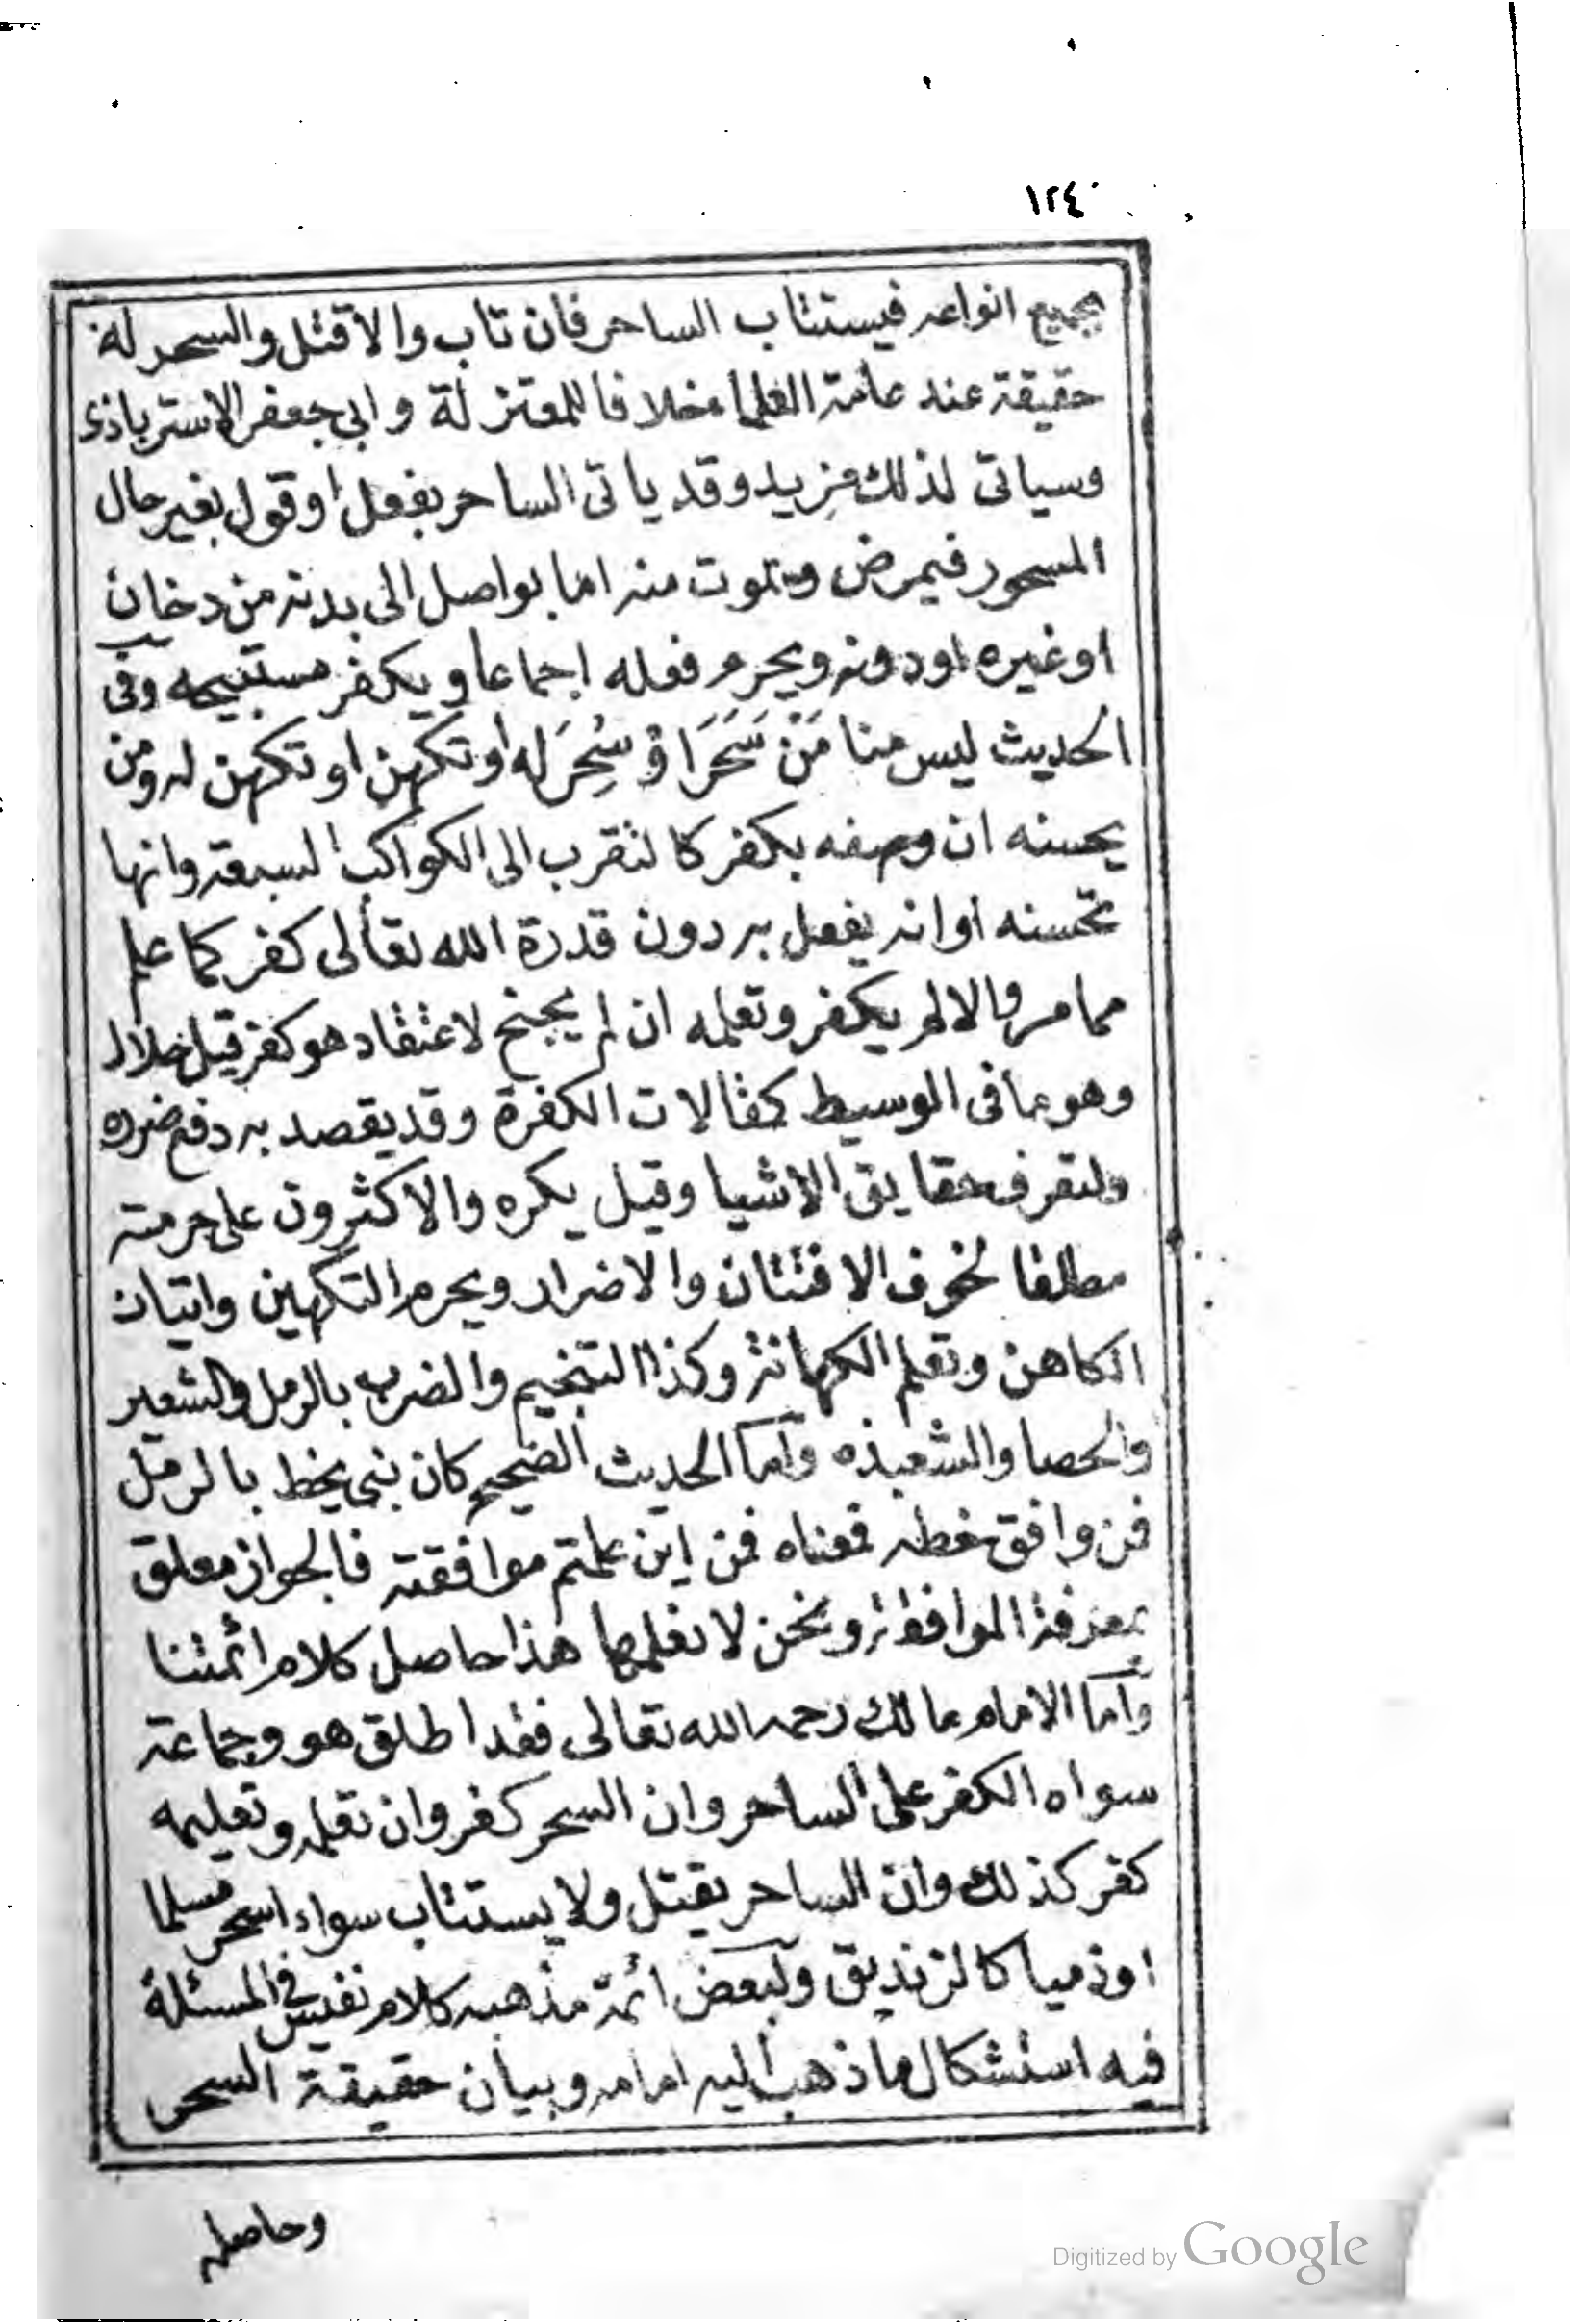 ١٢٤
بجميع انواعه فيستتاب الساحر فان تاب والا قتل والسحر له
حقيقة عند عامة العلماء خلافا للمعتزلة وابي جعفر الاسترباذى
وسياتى لذلك مزيد وقد ياتى الساحر بفعل او قول بغير حال
المسحور فيمرض ويموت منه اما بواصل الى بدنه من دخان
او غيره او دونه ويحرم فعله اجماعا ويكفر مستبيحه وفى
الحديث ليس منا مَنْ سَحَرَ اوْ سُحِرَ له او تكهن او تكهن له ومن
يحسنه ان وصفه بكفر كالتقرب الى الكواكب السبعة وانها
تحسنه او انه يفعل به دون قدرة الله تعالى كفر كما علم
مما مر والا لم يكفر وتعلمه ان لم يجنح لاعتقاد هو كفر قيل حلال
وهو ما فى الوسيط كمقالات الكفرة وقد يقصد به دفع ضرره
ولتعرف حقايق الاشيا وقيل يكره والاكثرون على حرمته
مطلقا لخوف الافتتان والاضرار ويحرم التكهين واتيان
الكاهن وتعلم الكهانة وكذا التنجيم والضرب بالرمل والشعير
والحصا والشعبذه وأما الحديث الصحيح كان نبى يخط بالرمل
فمن وافق خطه فمعناه فمن اين علمتم موافقته فالجواز معلق
بمعرفة الموافقة ونحن لا نعلمها هذا حاصل كلام ائمتنا
وأما الامام مالك رحمه الله تعالى فقد اطلق هو وجماعة
سواه الكفر على الساحر وان السحر كفر وان تعلمه وتعليمه
كفر كذلك وان الساحر يقتل ولا يستتاب سواء اسحر مسلما
او ذميا كالزنديق ولبعض ائمة مذهبه كلام نفيس فى المسئلة
فيه استشكال ما ذهب اليه امامه وبيان حقيقة السحر
وحاصله
Digitized by Google